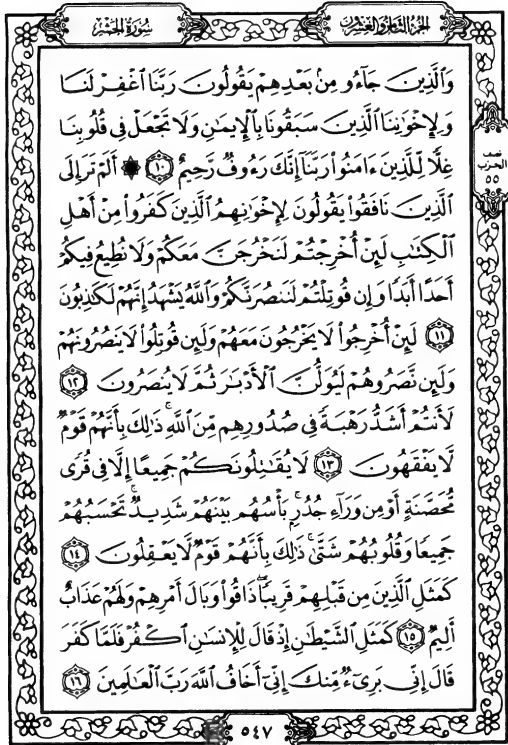 الجزء الثامن والعشرون
سورة الحشر
وَالَّذِينَ جَآءُو مِنۢ بَعْدِهِمْ يَقُولُونَ رَبَّنَا ٱغْفِرْ لَنَا
وَلِإِخْوَٰنِنَا ٱلَّذِينَ سَبَقُونَا بِٱلْإِيمَٰنِ وَلَا تَجْعَلْ فِى قُلُوبِنَا
غِلًّا لِّلَّذِينَ ءَامَنُوا۟ رَبَّنَآ إِنَّكَ رَءُوفٌ رَّحِيمٌ ١٠ ۞ أَلَمْ تَرَ إِلَى
ٱلَّذِينَ نَافَقُوا۟ يَقُولُونَ لِإِخْوَٰنِهِمُ ٱلَّذِينَ كَفَرُوا۟ مِنْ أَهْلِ
ٱلْكِتَٰبِ لَئِنْ أُخْرِجْتُمْ لَنَخْرُجَنَّ مَعَكُمْ وَلَا نُطِيعُ فِيكُمْ
أَحَدًا أَبَدًا وَإِن قُوتِلْتُمْ لَنَنصُرَنَّكُمْ وَٱللَّهُ يَشْهَدُ إِنَّهُمْ لَكَٰذِبُونَ
١١ لَئِنْ أُخْرِجُوا۟ لَا يَخْرُجُونَ مَعَهُمْ وَلَئِن قُوتِلُوا۟ لَا يَنصُرُونَهُمْ
وَلَئِن نَّصَرُوهُمْ لَيُوَلُّنَّ ٱلْأَدْبَٰرَ ثُمَّ لَا يُنصَرُونَ ١٢
لَأَنتُمْ أَشَدُّ رَهْبَةً فِى صُدُورِهِم مِّنَ ٱللَّهِ ۚ ذَٰلِكَ بِأَنَّهُمْ قَوْمٌ
لَّا يَفْقَهُونَ ١٣ لَا يُقَٰتِلُونَكُمْ جَمِيعًا إِلَّا فِى قُرًى
مُّحَصَّنَةٍ أَوْ مِن وَرَآءِ جُدُرٍۭ ۚ بَأْسُهُم بَيْنَهُمْ شَدِيدٌ ۚ تَحْسَبُهُمْ
جَمِيعًا وَقُلُوبُهُمْ شَتَّىٰ ۚ ذَٰلِكَ بِأَنَّهُمْ قَوْمٌ لَّا يَعْقِلُونَ ١٤
كَمَثَلِ ٱلَّذِينَ مِن قَبْلِهِمْ قَرِيبًا ۖ ذَاقُوا۟ وَبَالَ أَمْرِهِمْ وَلَهُمْ عَذَابٌ
أَلِيمٌ ١٥ كَمَثَلِ ٱلشَّيْطَٰنِ إِذْ قَالَ لِلْإِنسَٰنِ ٱكْفُرْ فَلَمَّا كَفَرَ
قَالَ إِنِّى بَرِىٓءٌ مِّنكَ إِنِّىٓ أَخَافُ ٱللَّهَ رَبَّ ٱلْعَٰلَمِينَ ١٦
نصف
الحزب
٥٥
٥٤٧